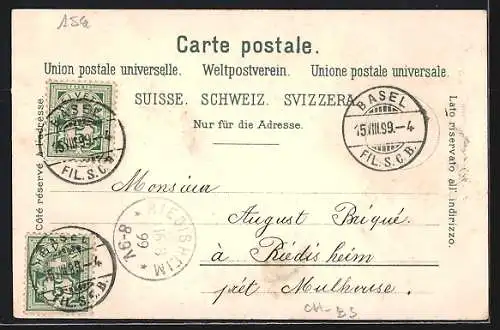 15a
Carte postale.
Union postale universelle. Weltpostverein. Unione postale universale.
SUISSE. SCHWEIZ. SVIZZERA.
Nur für die Adresse.
Côté réservé à l'adresse.
Lato riservato all' indirizzo.
BASEL
15.VIII.99.–4
FIL. S.C.B.
BASEL
15.VIII.99.–4
FIL. S.C.B.
BASEL
FIL. S.C.B.
RIEDISHEIM
99
* A6-8 *
Monsieur
August Briqué.
à Riedisheim
prêt Mulhouse.
CH-BS